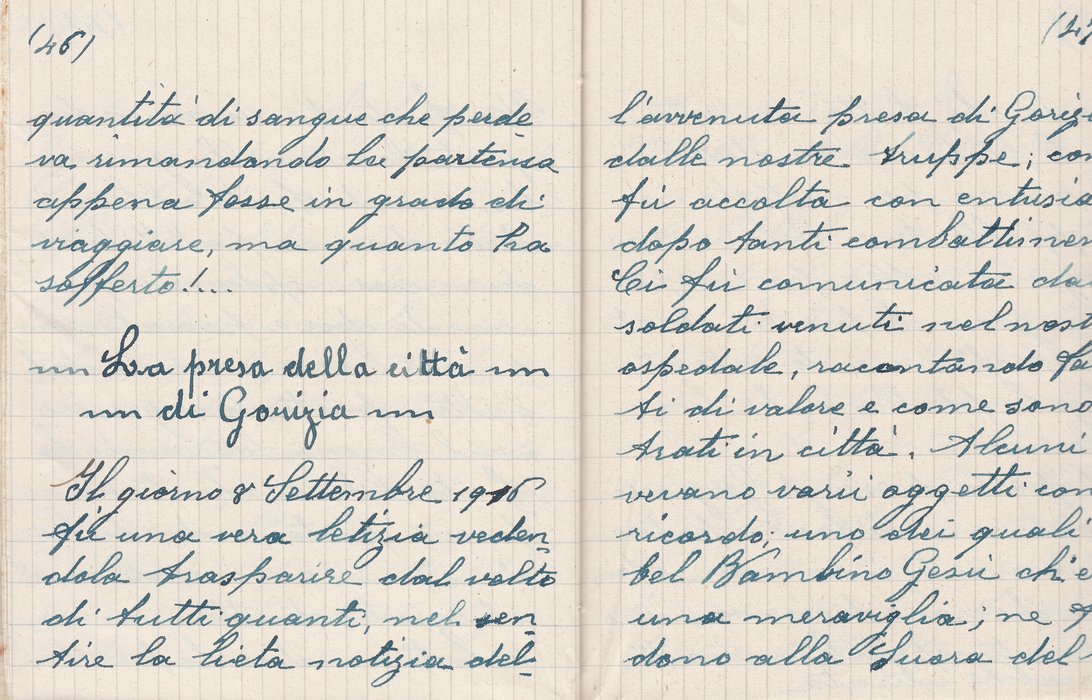 (46)
quantità di sangue che perde
va rimandando la partensa
appena fosse in grado di
viaggiare, ma quanto ha
sofferto!...
La presa della città
di Gorizia
Il giorno 8 Settembre 1916
fù una vera letizia veden_
dola trasparire dal volto
di tutti quanti, nel sen_
tire la lieta notizia del_
(4
l'avvenuta presa di Gorizi
dalle nostre truppe; con
fù accolta con entusia
dopo tanti combattimen
Ci fù comunicata da
soldati venuti nel nost
ospedale, racontando fa
ti di valore e come sono
trati in città. Alcuni
vevano varii oggetti com
ricordo; uno dei quali
bel Bambino Gesù ch'e
una meraviglia; ne
dono alla Suora del